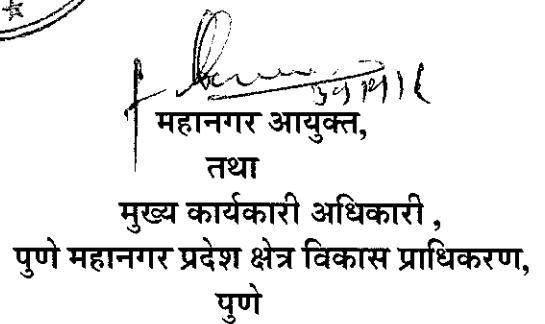 महानगर आयुक्त,
तथा
मुख्य कार्यकारी अधिकारी ,
पुणे महानगर प्रदेश क्षेत्र विकास प्राधिकरण,
पुणे